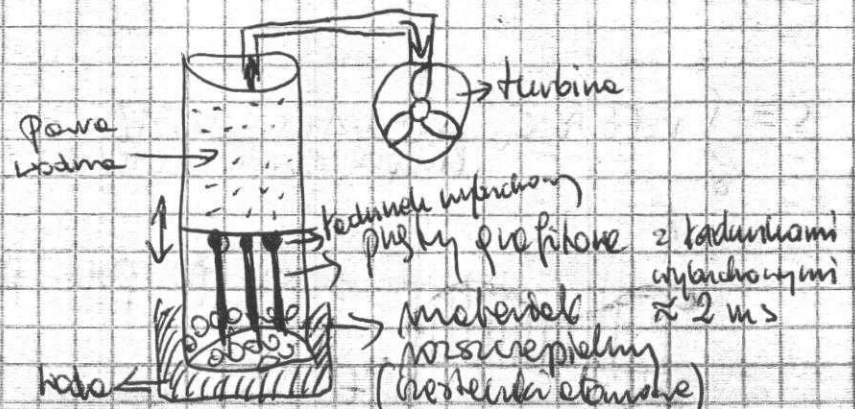 turbina
para
wodna
ładunek wybuchowy
pręty grafitowe z ładunkami
wybuchowymi
≈ 2 ms
materiał
rozszczepialny
(cząsteczki atomowe)
woda